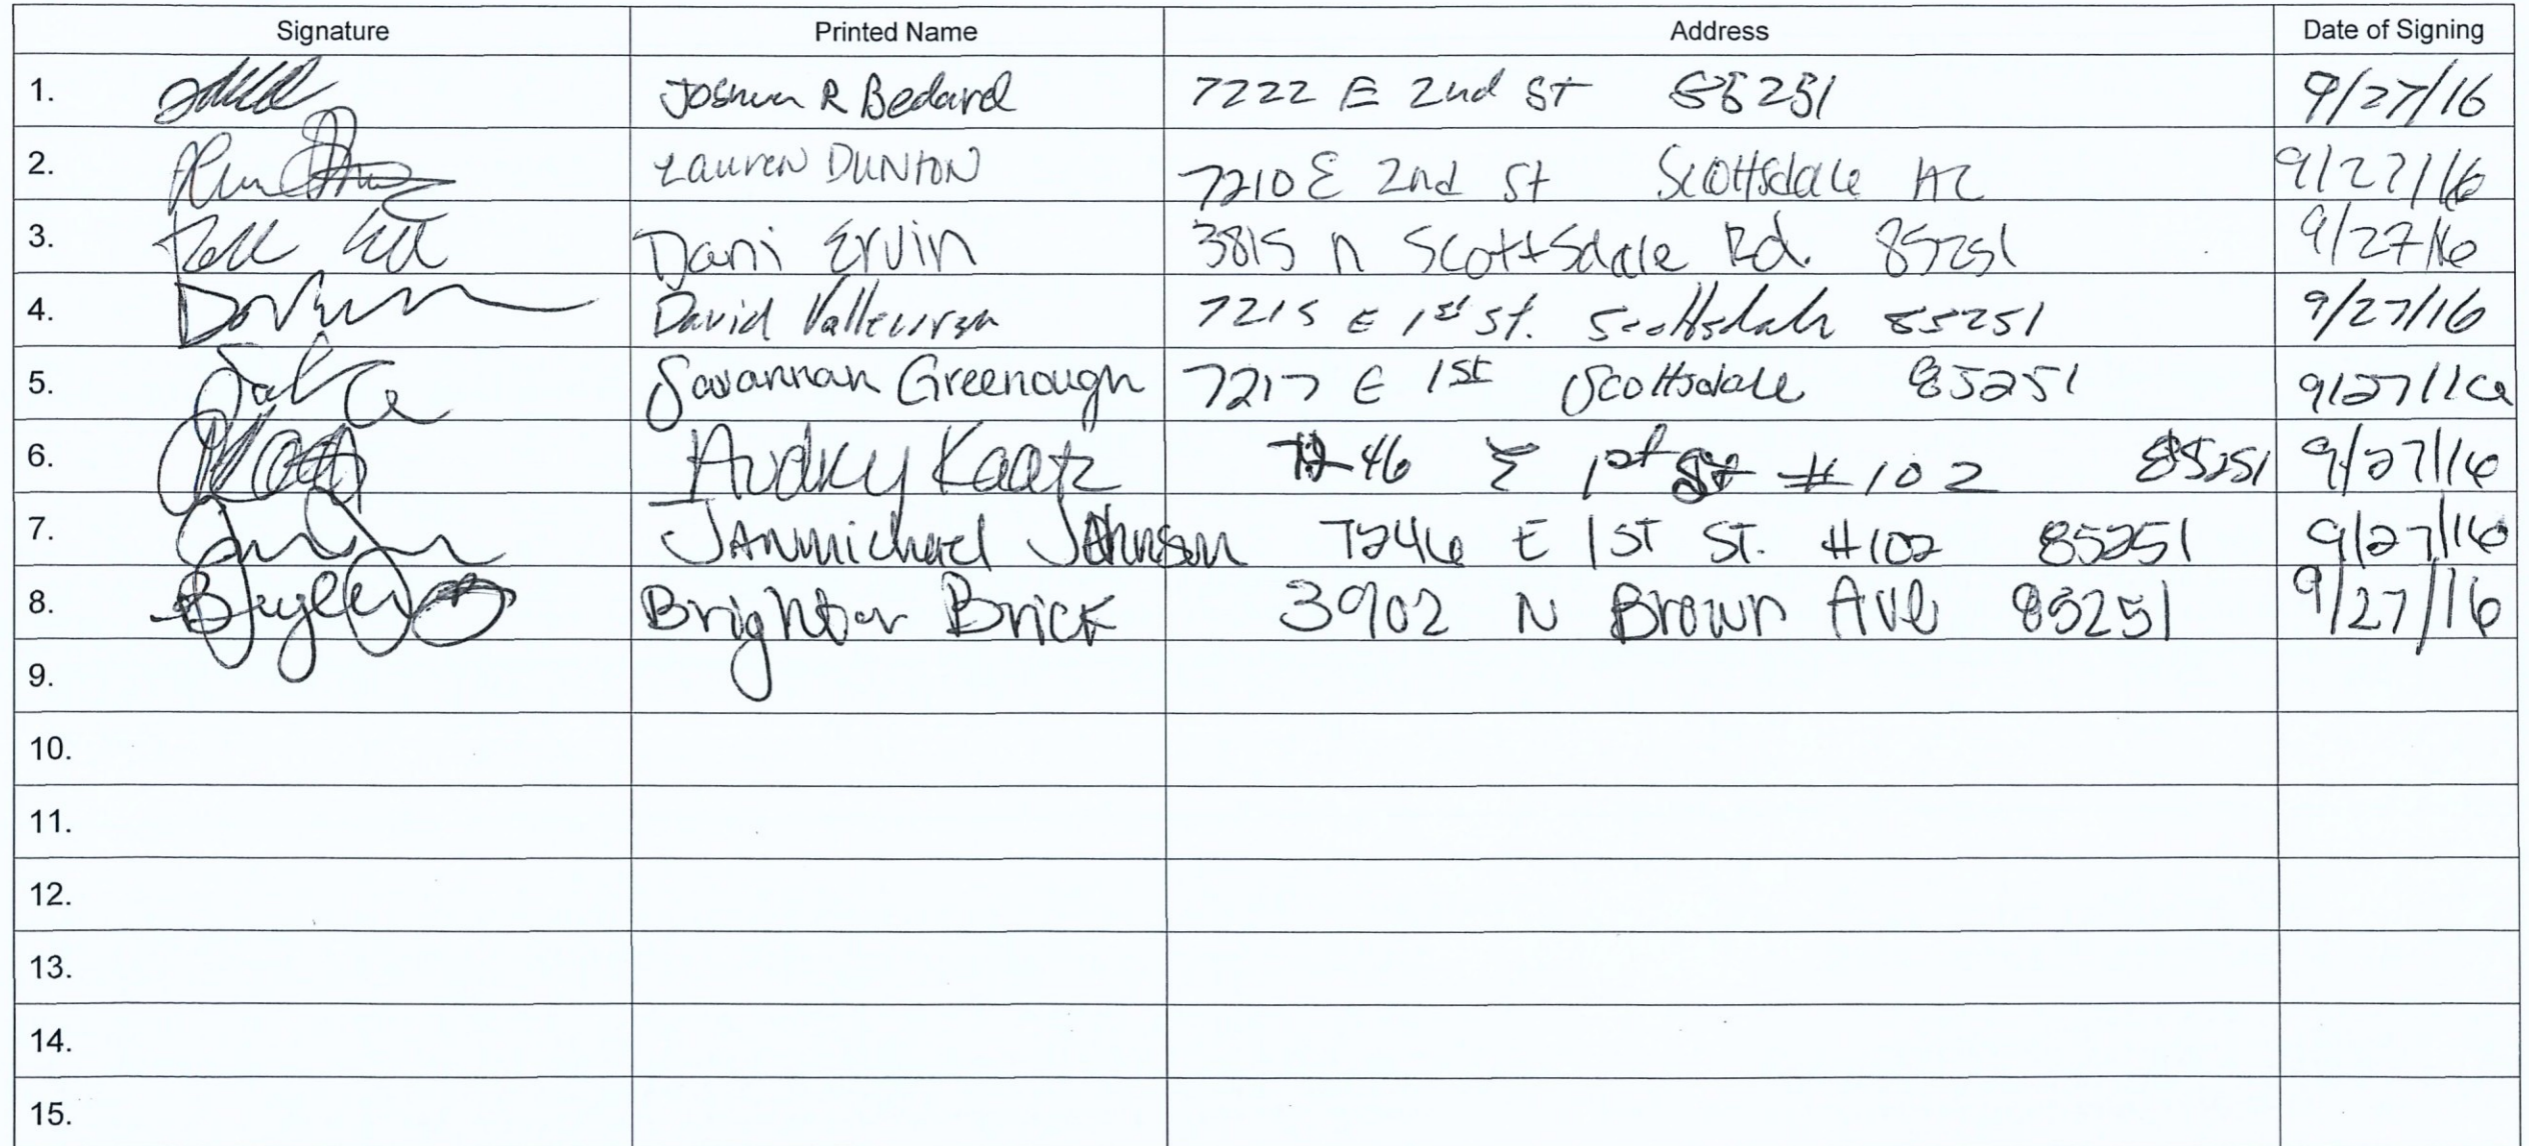 Signature Printed Name Address Date of Signing
1. Joshua R Bedard 7222 E 2nd St 85251 9/27/16
2. Lauren DUNTON 7210 E 2nd St Scottsdale AZ 9/27/16
3. Dani Ervin 3815 N Scottsdale Rd. 85251 9/27/16
4. David 7215 E 1st St. Scottsdale 85251 9/27/16
5. Savannah Greenough 7217 E 1st Scottsdale 85251 9/27/16
6. Audrey Kaatz 46 E 1st St #102 85251 9/27/16
7. JANmichael Johnson 7246 E 1ST ST. #102 85251 9/27/16
8. Brighton Brick 3902 N Brown Ave 85251 9/27/16
9.
10.
11.
12.
13.
14.
15.